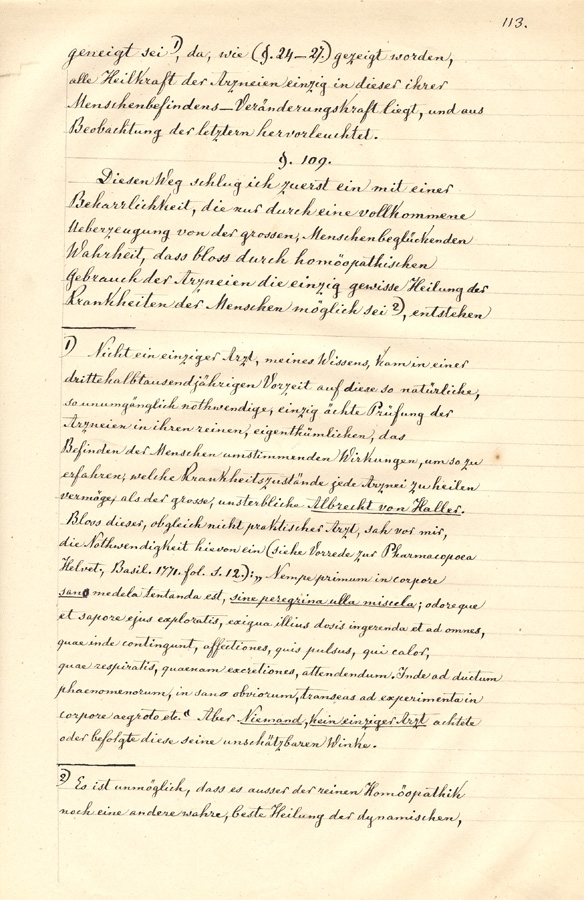 113.
geneigt sei 1), da, wie (§. 24–27.) gezeigt worden,
alle Heilkraft der Arzneien einzig in dieser ihrer
Menschenbefindens–Veränderungskraft liegt, und aus
Beobachtung der letztern hervorleuchtet.
§. 109.
Diesen Weg schlug ich zuerst ein mit einer
Beharrlichkeit, die nur durch eine vollkommene
Ueberzeugung von der grossen, Menschenbeglückenden
Wahrheit, dass bloss durch homöopathischen
Gebrauch der Arzneien die einzig gewisse Heilung der
Krankheiten der Menschen möglich sei 2), entstehen
1) Nicht ein einziger Arzt, meines Wissens, kam in einer
drittehalbtausendjährigen Vorzeit auf diese so natürliche,
so unumgänglich nothwendige, einzig ächte Prüfung der
Arzneien in ihren reinen, eigenthümlichen, das
Befinden der Menschen umstimmenden Wirkungen, um so zu
erfahren, welche Krankheitszustände jede Arznei zu heilen
vermöge, als der grosse, unsterbliche Albrecht von Haller.
Bloss dieser, obgleich nicht praktischer Arzt, sah vor mir,
die Nothwendigkeit hievon ein (siehe Vorrede zur Pharmacopoea
Helvet, Basil. 1771. fol. S. 12.): „Nempe primum in corpore
sano medela tentanda est, sine peregrina ulla miscela; odore que
et sapore ejus exploratis, exigua illius dosis ingerenda et ad omnes,
quae inde contingunt, affectiones, quis pulsus, qui calor,
quae respiratis, quaenam excretiones, attendendum. Inde ad ductum
phaenomenorum, in sano obviorum, transeas ad experimenta in
corpore aegroto etc." Aber Niemand, kein einziger Arzt achtete
oder befolgte diese seine unschätzbaren Winke.
2) Es ist unmöglich, dass es ausser der reinen Homöopathik
noch eine andere wahre, beste Heilung der dynamischen,